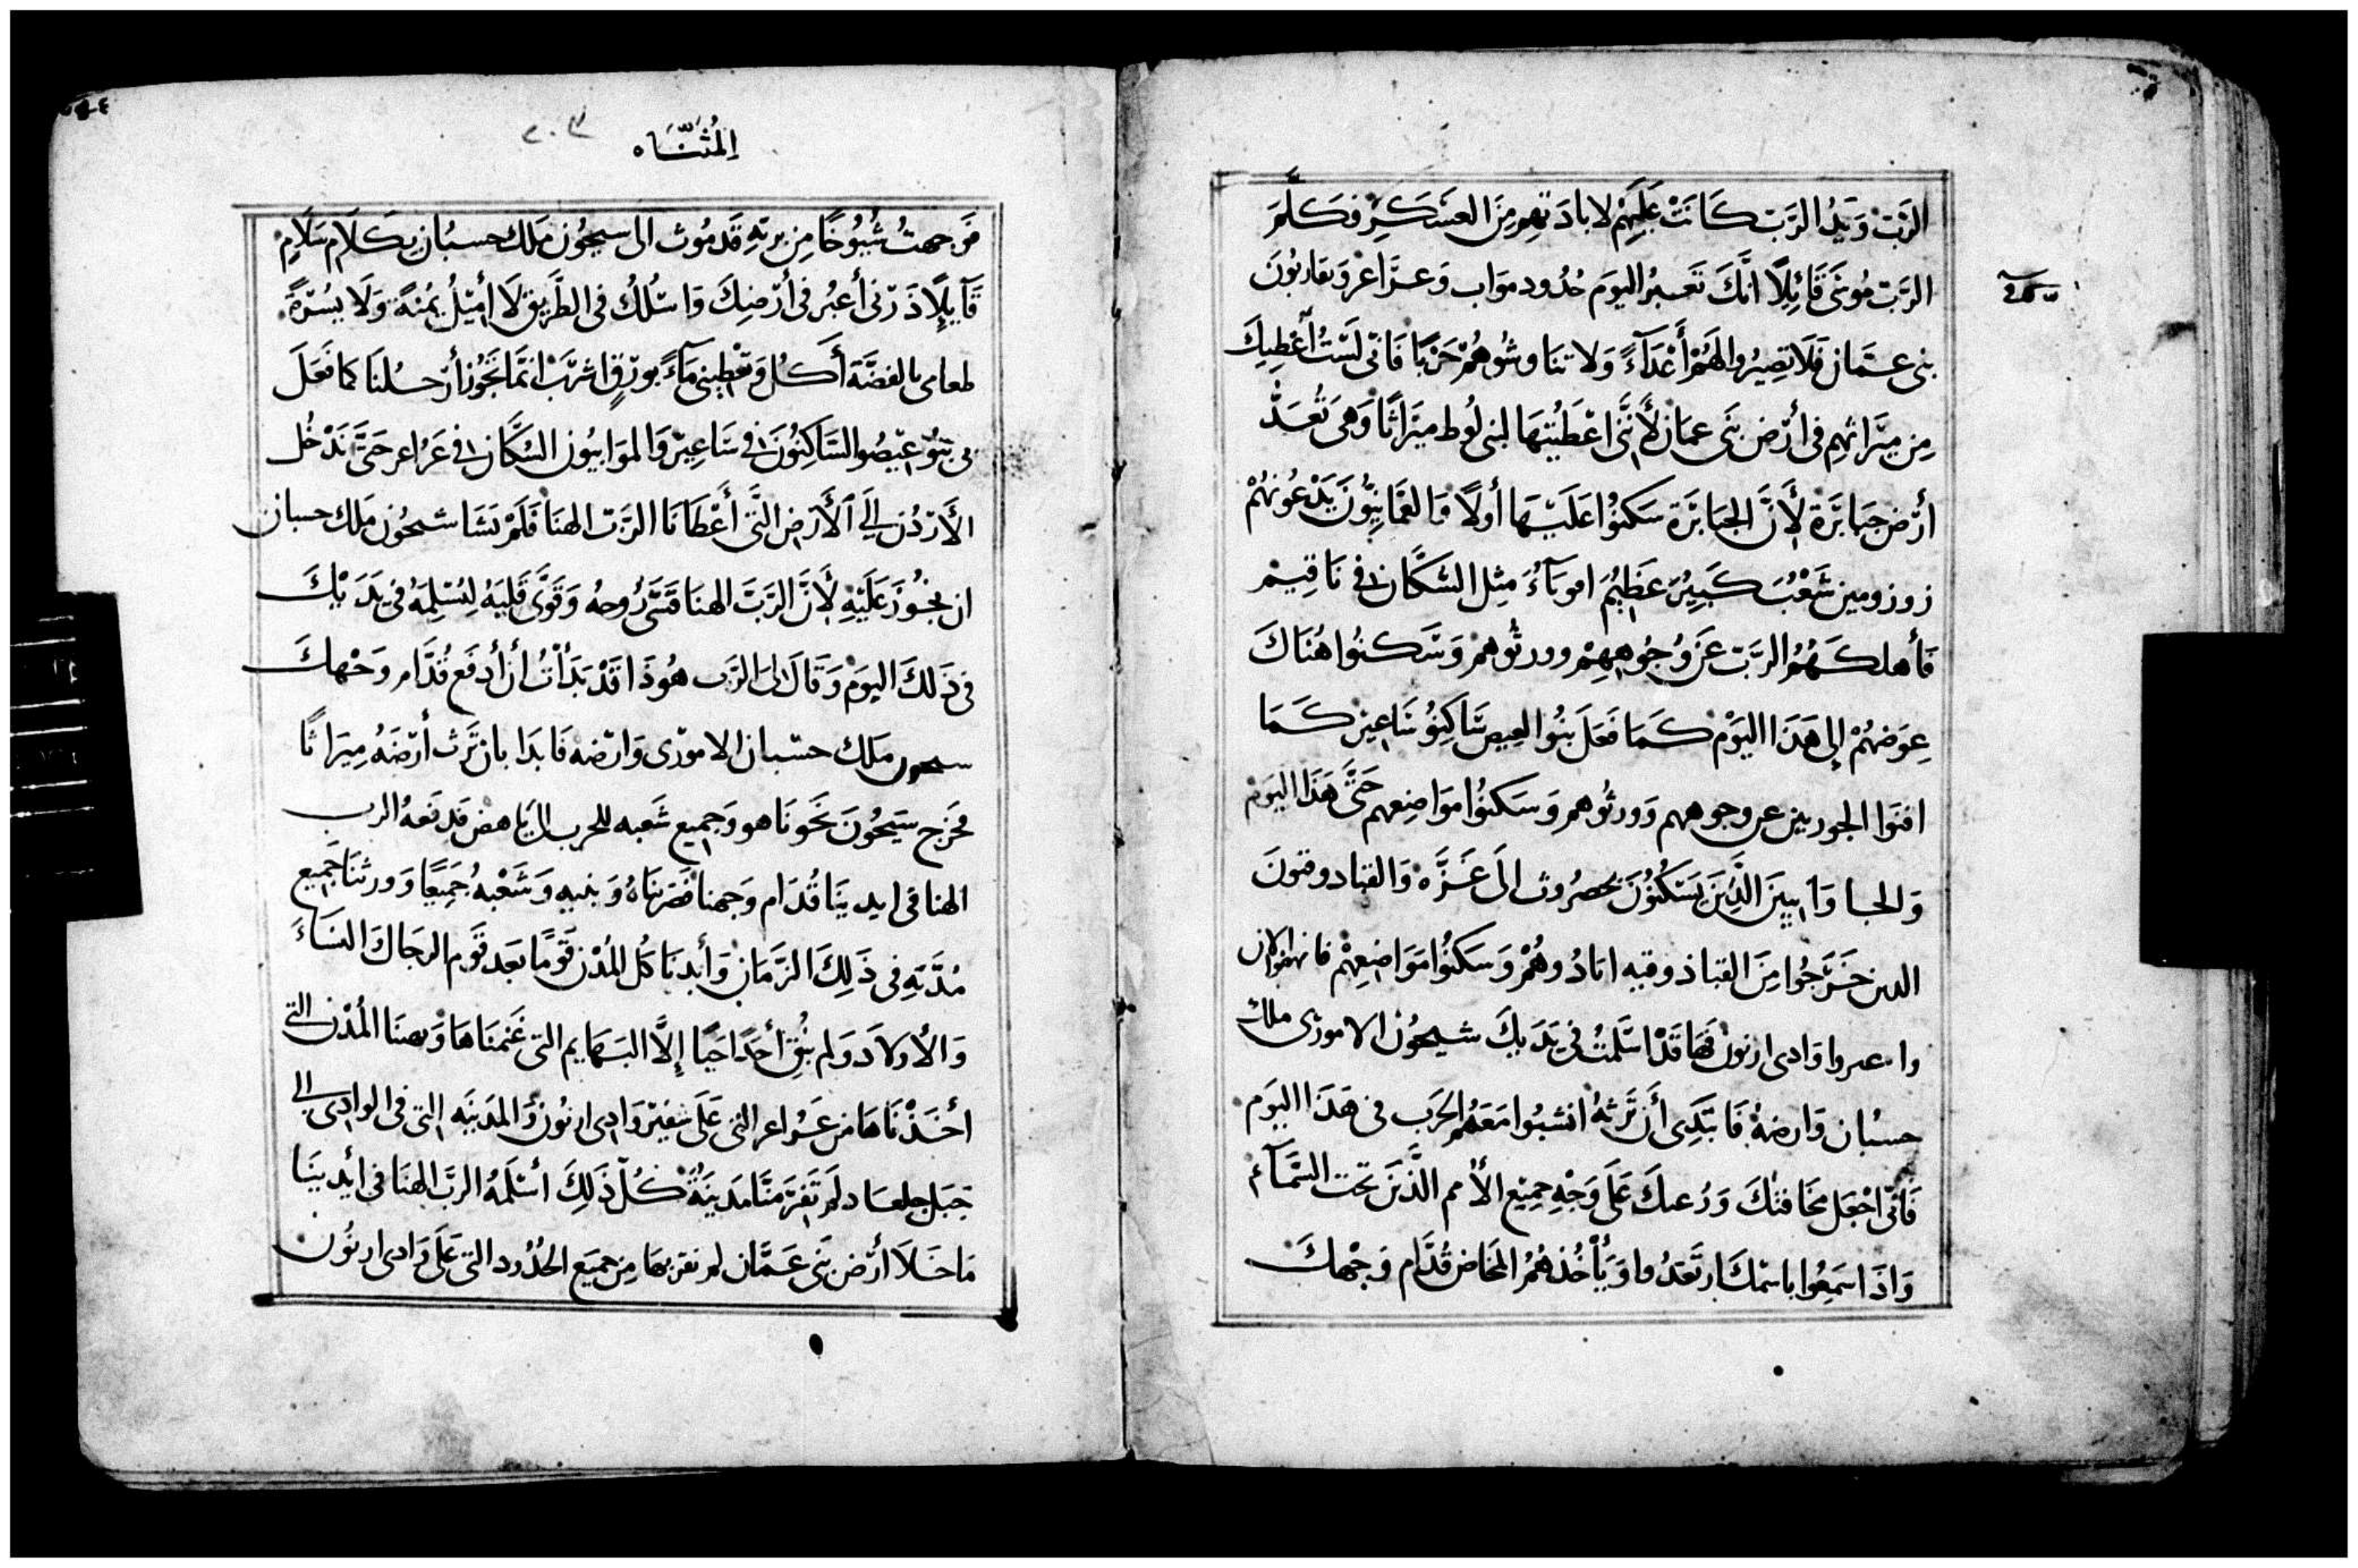 الرَّبْ وَيَدُ الرَّبّ كَانَتْ عَلَيهِمْ لابادَتهِم مِنَ العَسَكِر فكلَّمَ
الرَّبّ مُوسَى قَائِلًا انَّكَ تَعبرُ اليَوم حُدُود مَواب وَعزَاعر وَتقاربُونَ
بنى عمَّان فَلا تصِيرُوا لهُمْ أَعْدَآءً وَلا تنَاوشُوهُمْ حَرْبًا فَانّى لَسْتُ أعْطِيكَ
مِن مِيَراثهِم فى أرْض بَنى عمَان لأَنَّنى اعْطَيْتهَا لبنى لُوط مِيَراثًا وَهى تُعَدُّ
أرْض جَبابَرَة لأَنَّ الجبَابرَة سَكنُوا عَلَيْهَا أولًا وَالعَمَّانِيُّونَ يَدْعُونهُمْ
زوزومين شَعْبُ كَبيرُ عَظِيمُ اقويَآءُ مِثل السُكَّان فى نَاقيم
فأهلكَهُمُ الربّ عَن وُجُوهِهِمْ وورثُوهم وَسَكنُوا هُنَاكَ
عِوَضهُمْ إلى هَذَا اليَوْم كَمَا فَعَل بَنُوا العيص سَاكِنُو سَاعِير كَمَا
افنَوا الجوريين عن وجوههم وَورثُوهم وَسَكنُوا مَوَاضِعهم حَتَّى هَذَا اليَوم
وَالحـا وَآ بيينَ الَّذِينَ يَسْكُنُونَ بحصرُوث الَى غَزَّه وَالقبادوقونَ
الدين خَرَجُوا مِنَ القباذوقيه ابَادُوهُمْ وَسَكنُوا مَوَاضِعِهِمْ فانهضوا الان
واعبروا وَادى ارنون فَها قَدْ اسَّلمتُ فى يَدَيكَ شيحُون الامورى ملك
حسبُان وَارضهُ فَابتَدى أَن تَرثهُ انشبُوا مَعَهُم الحَرب فى هَذَا اليَوم
فَانّى اجْعَل مخَافتكَ وَرُعبكَ عَلَى وَجْه جمِيْع الأُمم الَّذينَ تحت السَّمَآء
وَاذَا سَمِعُوا باسمكَ ارتَعَدُوا وَيَأْخُذهُمُ المخَاض قُدَّام وَجْهكَ
المُثَنَّاه
٢٠٣
فَوجهتُ شُيُوخًا مِن بريّه قَدمُوث الى سيحُون مَلك حسبُان بكَلَام سَلَامٍ
قَآيلًا ذَرْنى أعبُر فى أرْضِكَ وَاسْلُكُ فى الطَّريق لَا أميْلُ يُمْنَةً وَلَا يُسْرَةً
طعامى بالفضَّة أَكُل وَتعْطِينى مَآءً بورْقٍ اشرَبْ انمَّا نَجُوز أرْحلنَا كما فَعَلَ
بى بَنُو عِيْصُو السَاكِنُونَ فى سَاعِيْر وَالموَابيُون السُكَّان فى عَرُاعر حَتَّى نَدْخُل
الأَرْدُن إلى الأَرْض التَّى أَعْطَانَا الرَّبّ الهنَا فَلَمْ يَشَا شيحُون مَلك حسبان
ان نجُوزَ عَلَيْهِ لأَنَّ الرَّبّ الهنَا قَسَّى رُوحهُ وَقَوَّى قَلبَهُ لِيُسْلِمَهُ فى يَدَيْكَ
فى ذَلكَ اليَوم وَقَالَ لى الرَّب هُوذَا قَدْ بَدَأْتُ أن أدفَع قُدَّام وَجْهكَ
سيحون مَلك حسْبان الامورْى وَارْضه فَابدَا بان تَرث أرْضَهُ مِيَراثًا
فخرَج سيَحُونَ نحَونَا هو وَجميع شَعبه للحرب الَى ياهص فَدفَعهُ الرب
الهنا فى ايدينَا قُدَام وَجهنا فضَربنَاهُ وَبنيه وَشَعْبهُ جَميعًا وَورثنَا جَميع
مُدَنهِ فى ذَلكَ الزَّمَان وَأبدنَا كُل المُدُن قَومًا بَعد قَوم الرجَال النسَآءَ
وَالأولَاد وَلم نُبْق أحَدًا حَيًا إلَّا البَهايم التى غَنمنَاهَا وَنهبنَا المُدُن التى
أخَذْنَاهَا من عَرُاعر التى عَلَى شفيْر وَادى ارنُون وَالمَدينَه التى فى الوادى الى
جَبَل جلعاد لَم تَفرّ مِنَّا مَدينَةُ كُلّ ذَلِكَ اسْلَمهُ الربُّ الهنَا فى أيدينَا
مَا خَلَا أرْض بَنى عَمَّان لم نقربهَا مِن جميَع الحُدُود التى عَلَى وَادى ارنُون